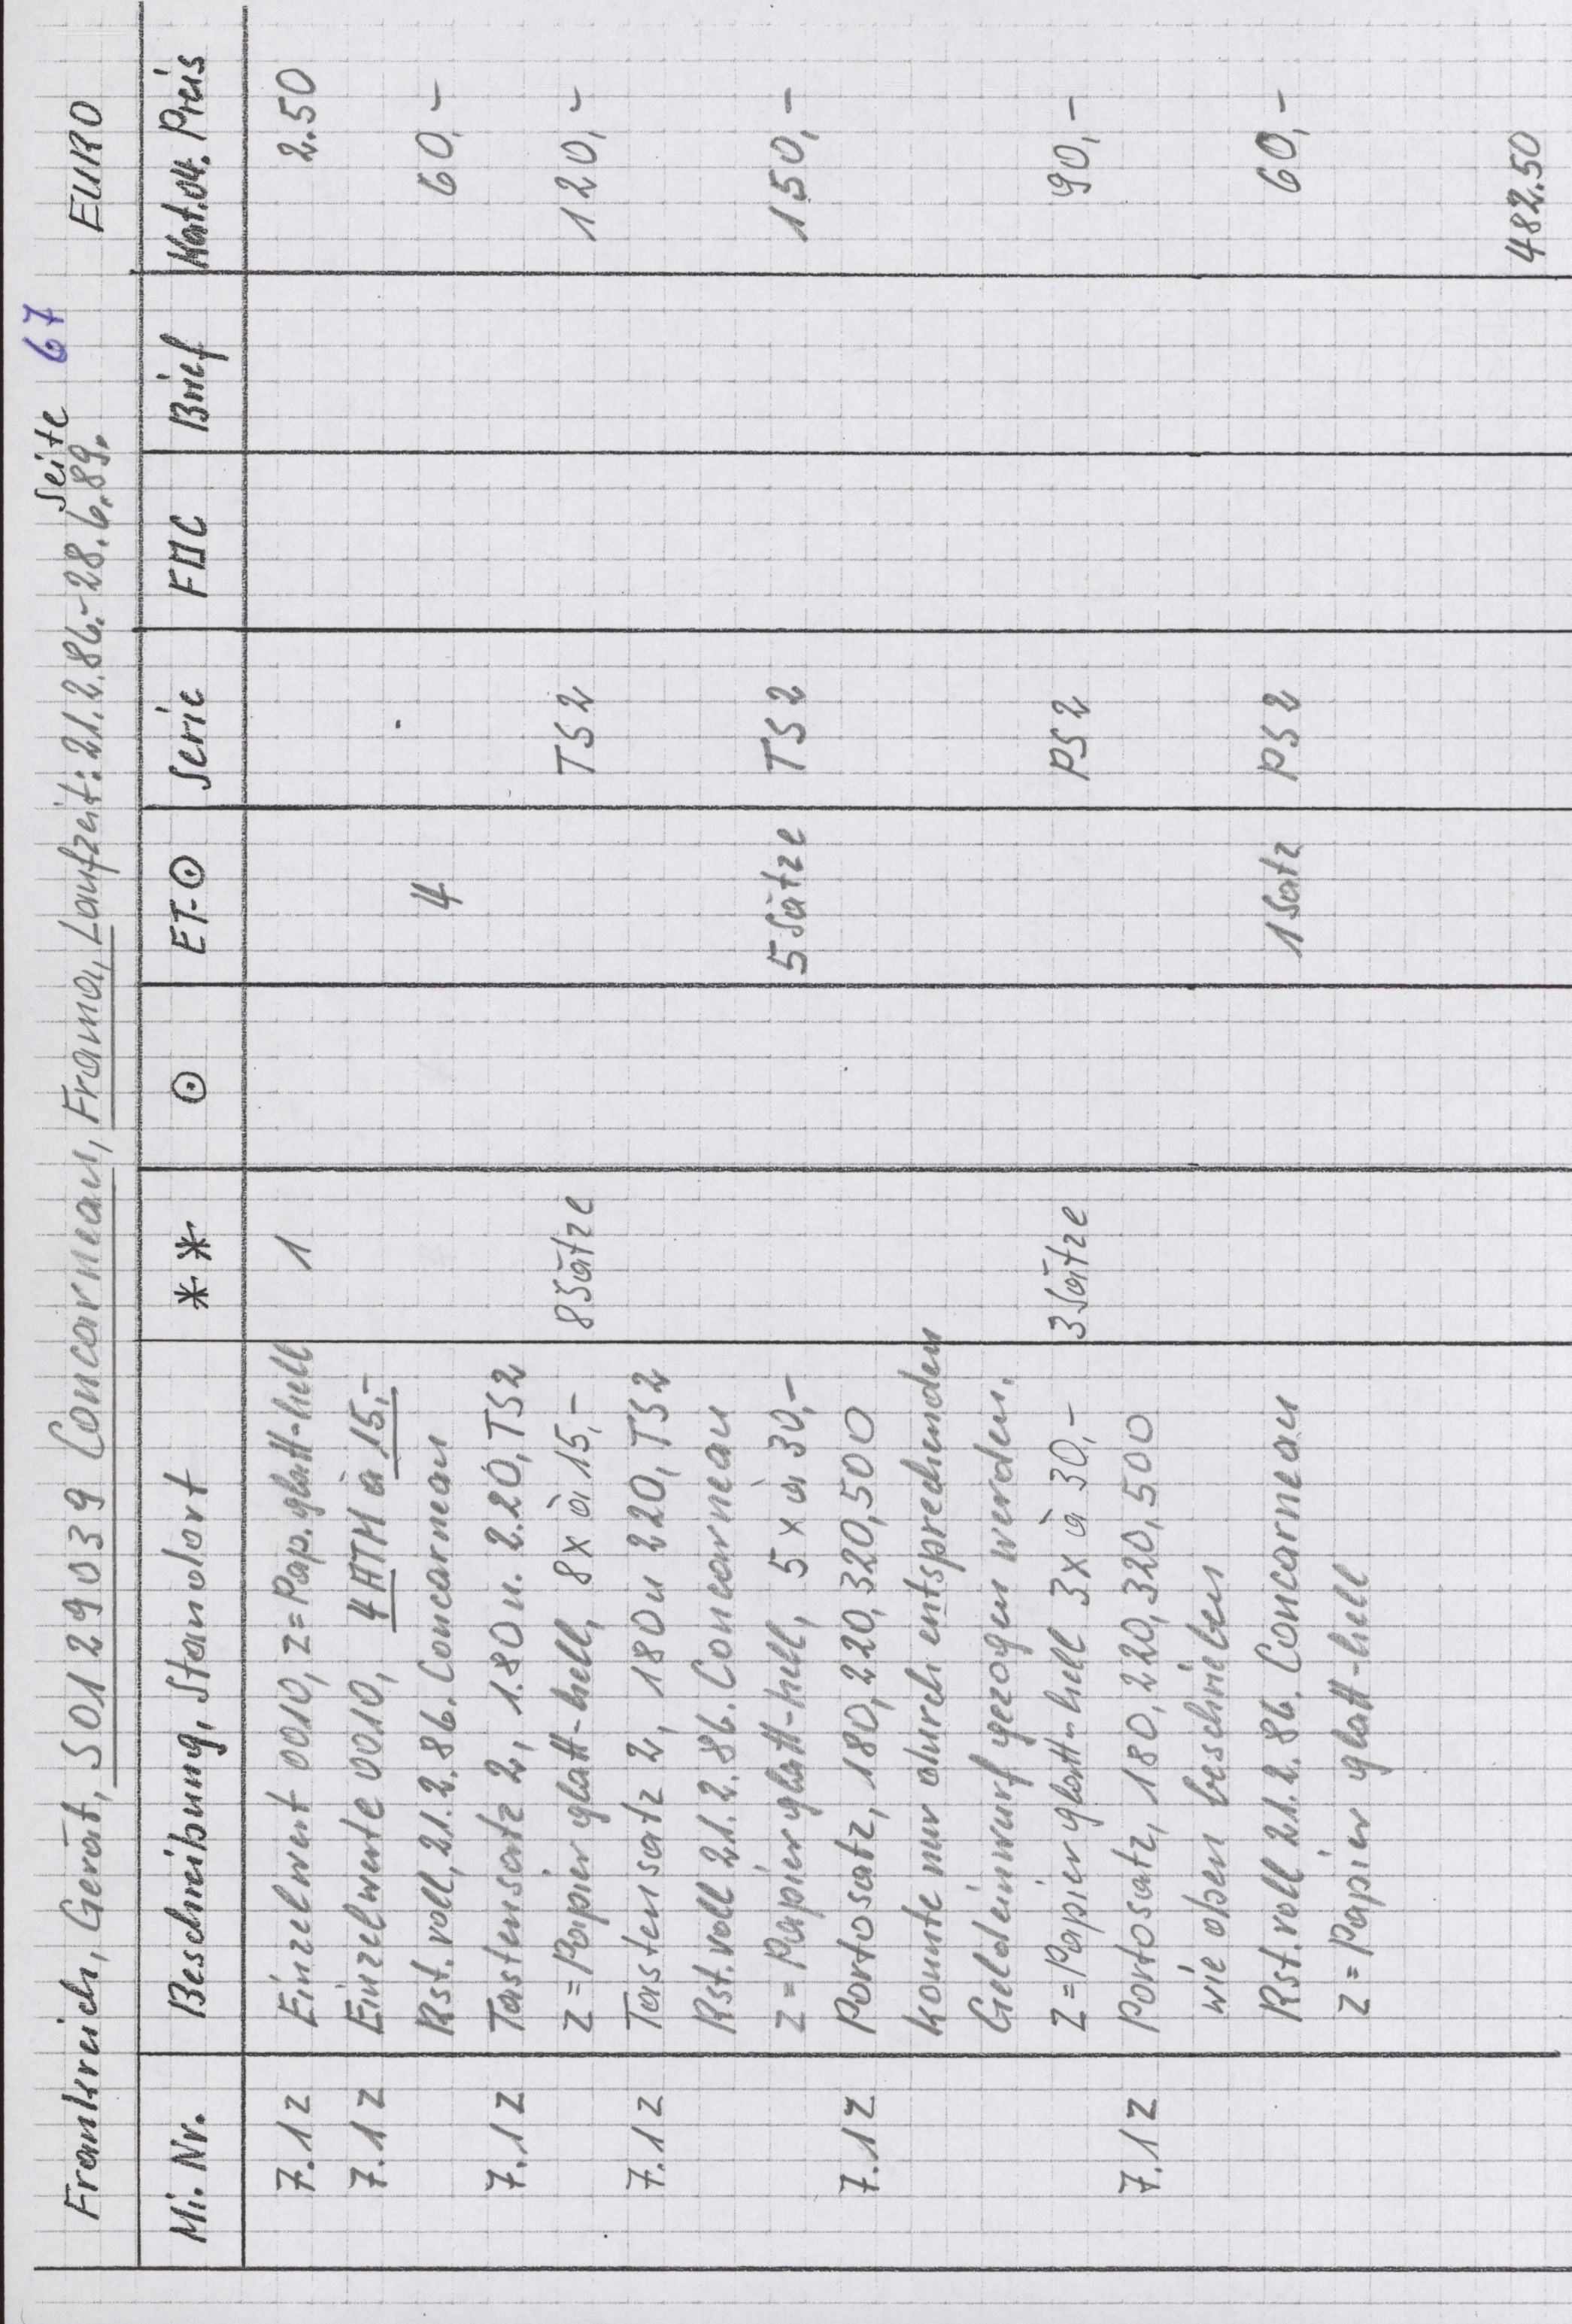 Seite 67
Frankreich, Gerät, S0129039 Concarneau, Frama, Laufzeit: 21.2.86.-28.6.89. EURO
Mi. Nr. Beschreibung, Standort ** ⊙ ET-⊙ Serie FDC Brief Kat.04. Preis
7.1z Einzelwert 0010, z=Pap. glatt-hell 1 2.50
7.1z Einzelwerte 0010, 4 ATM à 15,-
Rst. voll, 21.2.86. Concarneau 4 60,-
7.1z Tastensatz 2, 1.80 u. 2.20, TS2
z=Papier glatt-hell, 8x à 15,- 8 Sätze TS2 120,-
7.1z Tastensatz 2, 180 u 220, TS2
Rst. voll 21.2.86. Concarneau
z=Papier glatt-hell, 5x à 30,- 5 Sätze TS2 150,-
7.1z Portosatz, 180, 220, 320, 500
konnte nur durch entsprechenden
Geldeinwurf gezogen werden.
z=Papier glatt-hell 3x à 30,- 3 Sätze PS2 90,-
7.1z Portosatz, 180, 220, 320, 500
wie oben beschrieben
Rst. voll 21.2.86. Concarneau 1 Satz PS2 60,-
z=Papier glatt-hell
482.50